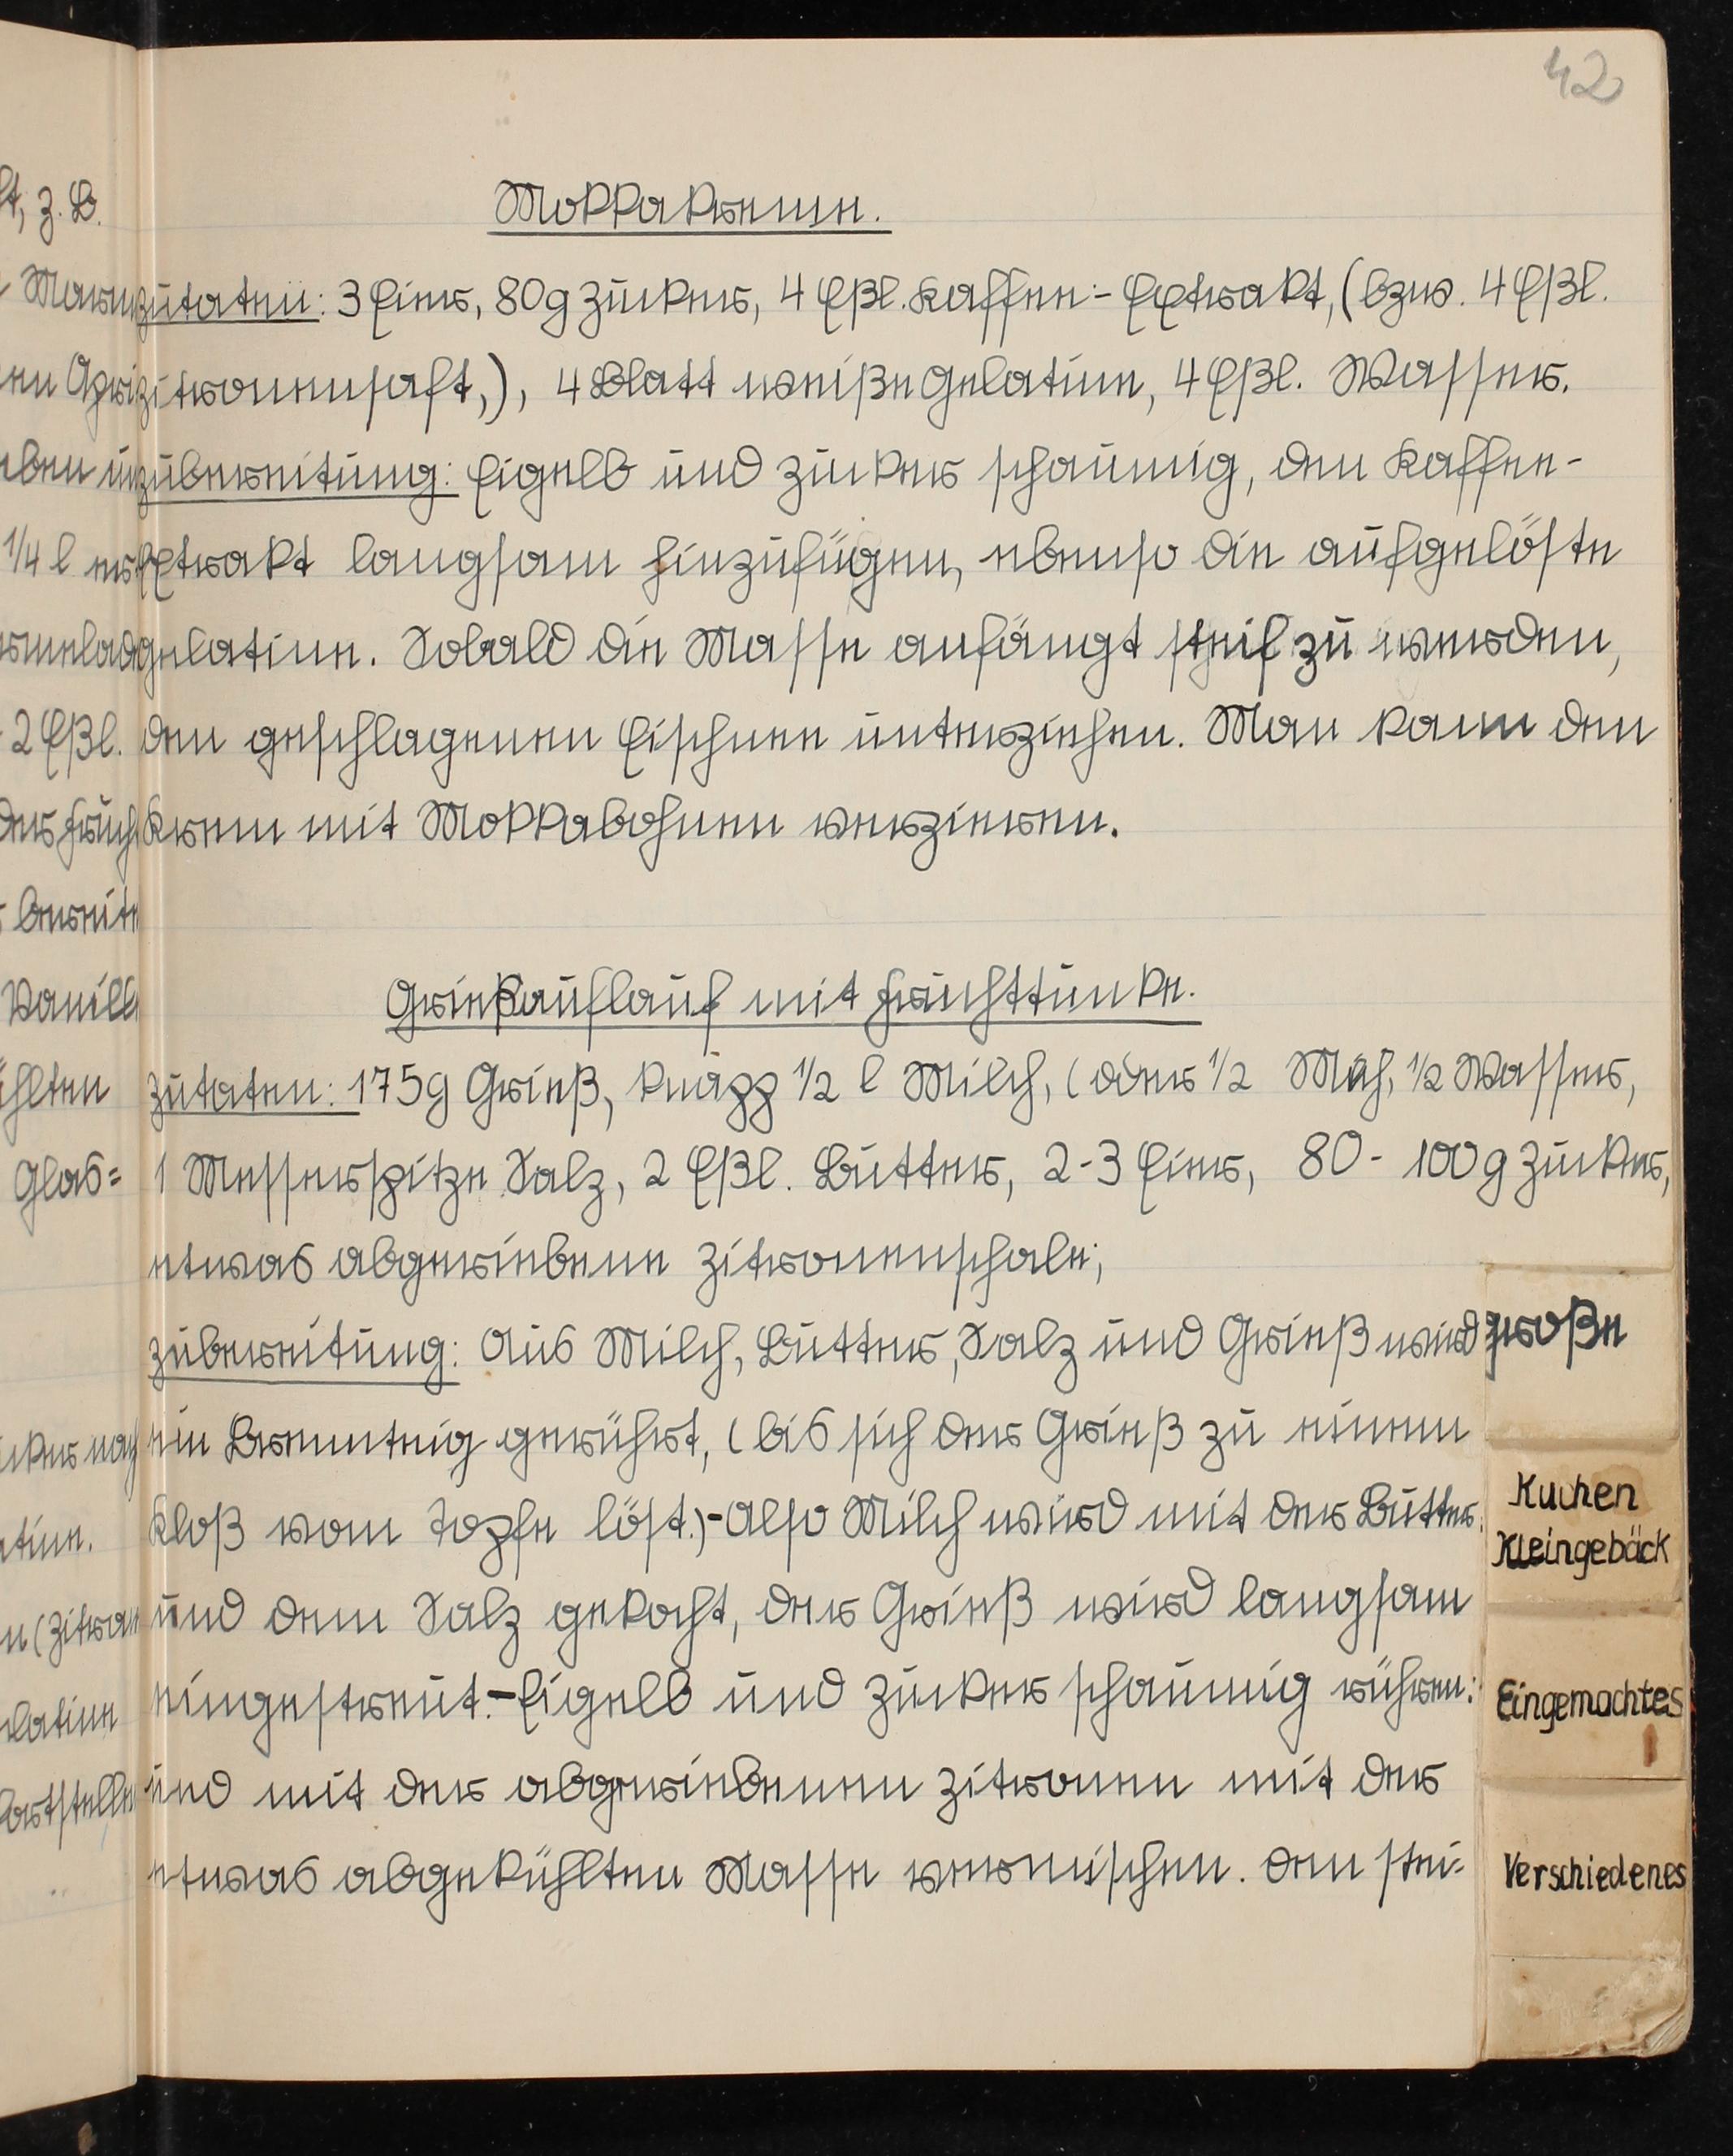 42
Mokkakreme.
Zutaten: 3 Eier, 80g Zucker, 4 Eßl. Kaffee-Extrakt, (bzw. 4 Eßl.
Zitronensaft,), 4 Blatt weiße Gelatine, 4 Eßl. Wasser.
Zubereitung: Eigelb und Zucker schaumig, den Kaffee-
Extrakt langsam hinzufügen, ebenso die aufgelöste
Gelatine. Sobald die Masse anfängt steif zu werden,
den geschlagenen Eischnee unterziehen. Man kann den
Krem mit Mokkabohnen verzieren.
Grießauflauf mit Fruchttunke.
Zutaten: 175g Grieß, knapp 1/2 l Milch, (oder 1/2 Milch, 1/2 Wasser,
1 Messerspitze Salz, 2 Eßl. Butter, 2-3 Eier, 80- 100g Zucker,
etwas abgeriebene Zitronenschale;
Zubereitung: Aus Milch, Butter, Salz und Grieß wird
ein Brennteig gerührt, (bis sich der Grieß zu einem
Kloß vom Topfe löst.)-Also Milch wird mit der Butter
und dem Salz gekocht, der Grieß wird langsam
eingestreut.-Eigelb und Zucker schaumig rühren:
und mit der abgeriebenen Zitronen mit der
etwas abgekühlten Masse vermischen. Den stei-
große
Kuchen
Kleingebäck
Eingemachtes
Verschiedenes
z. B.
1/4 l
2 Eßl.
Glas=